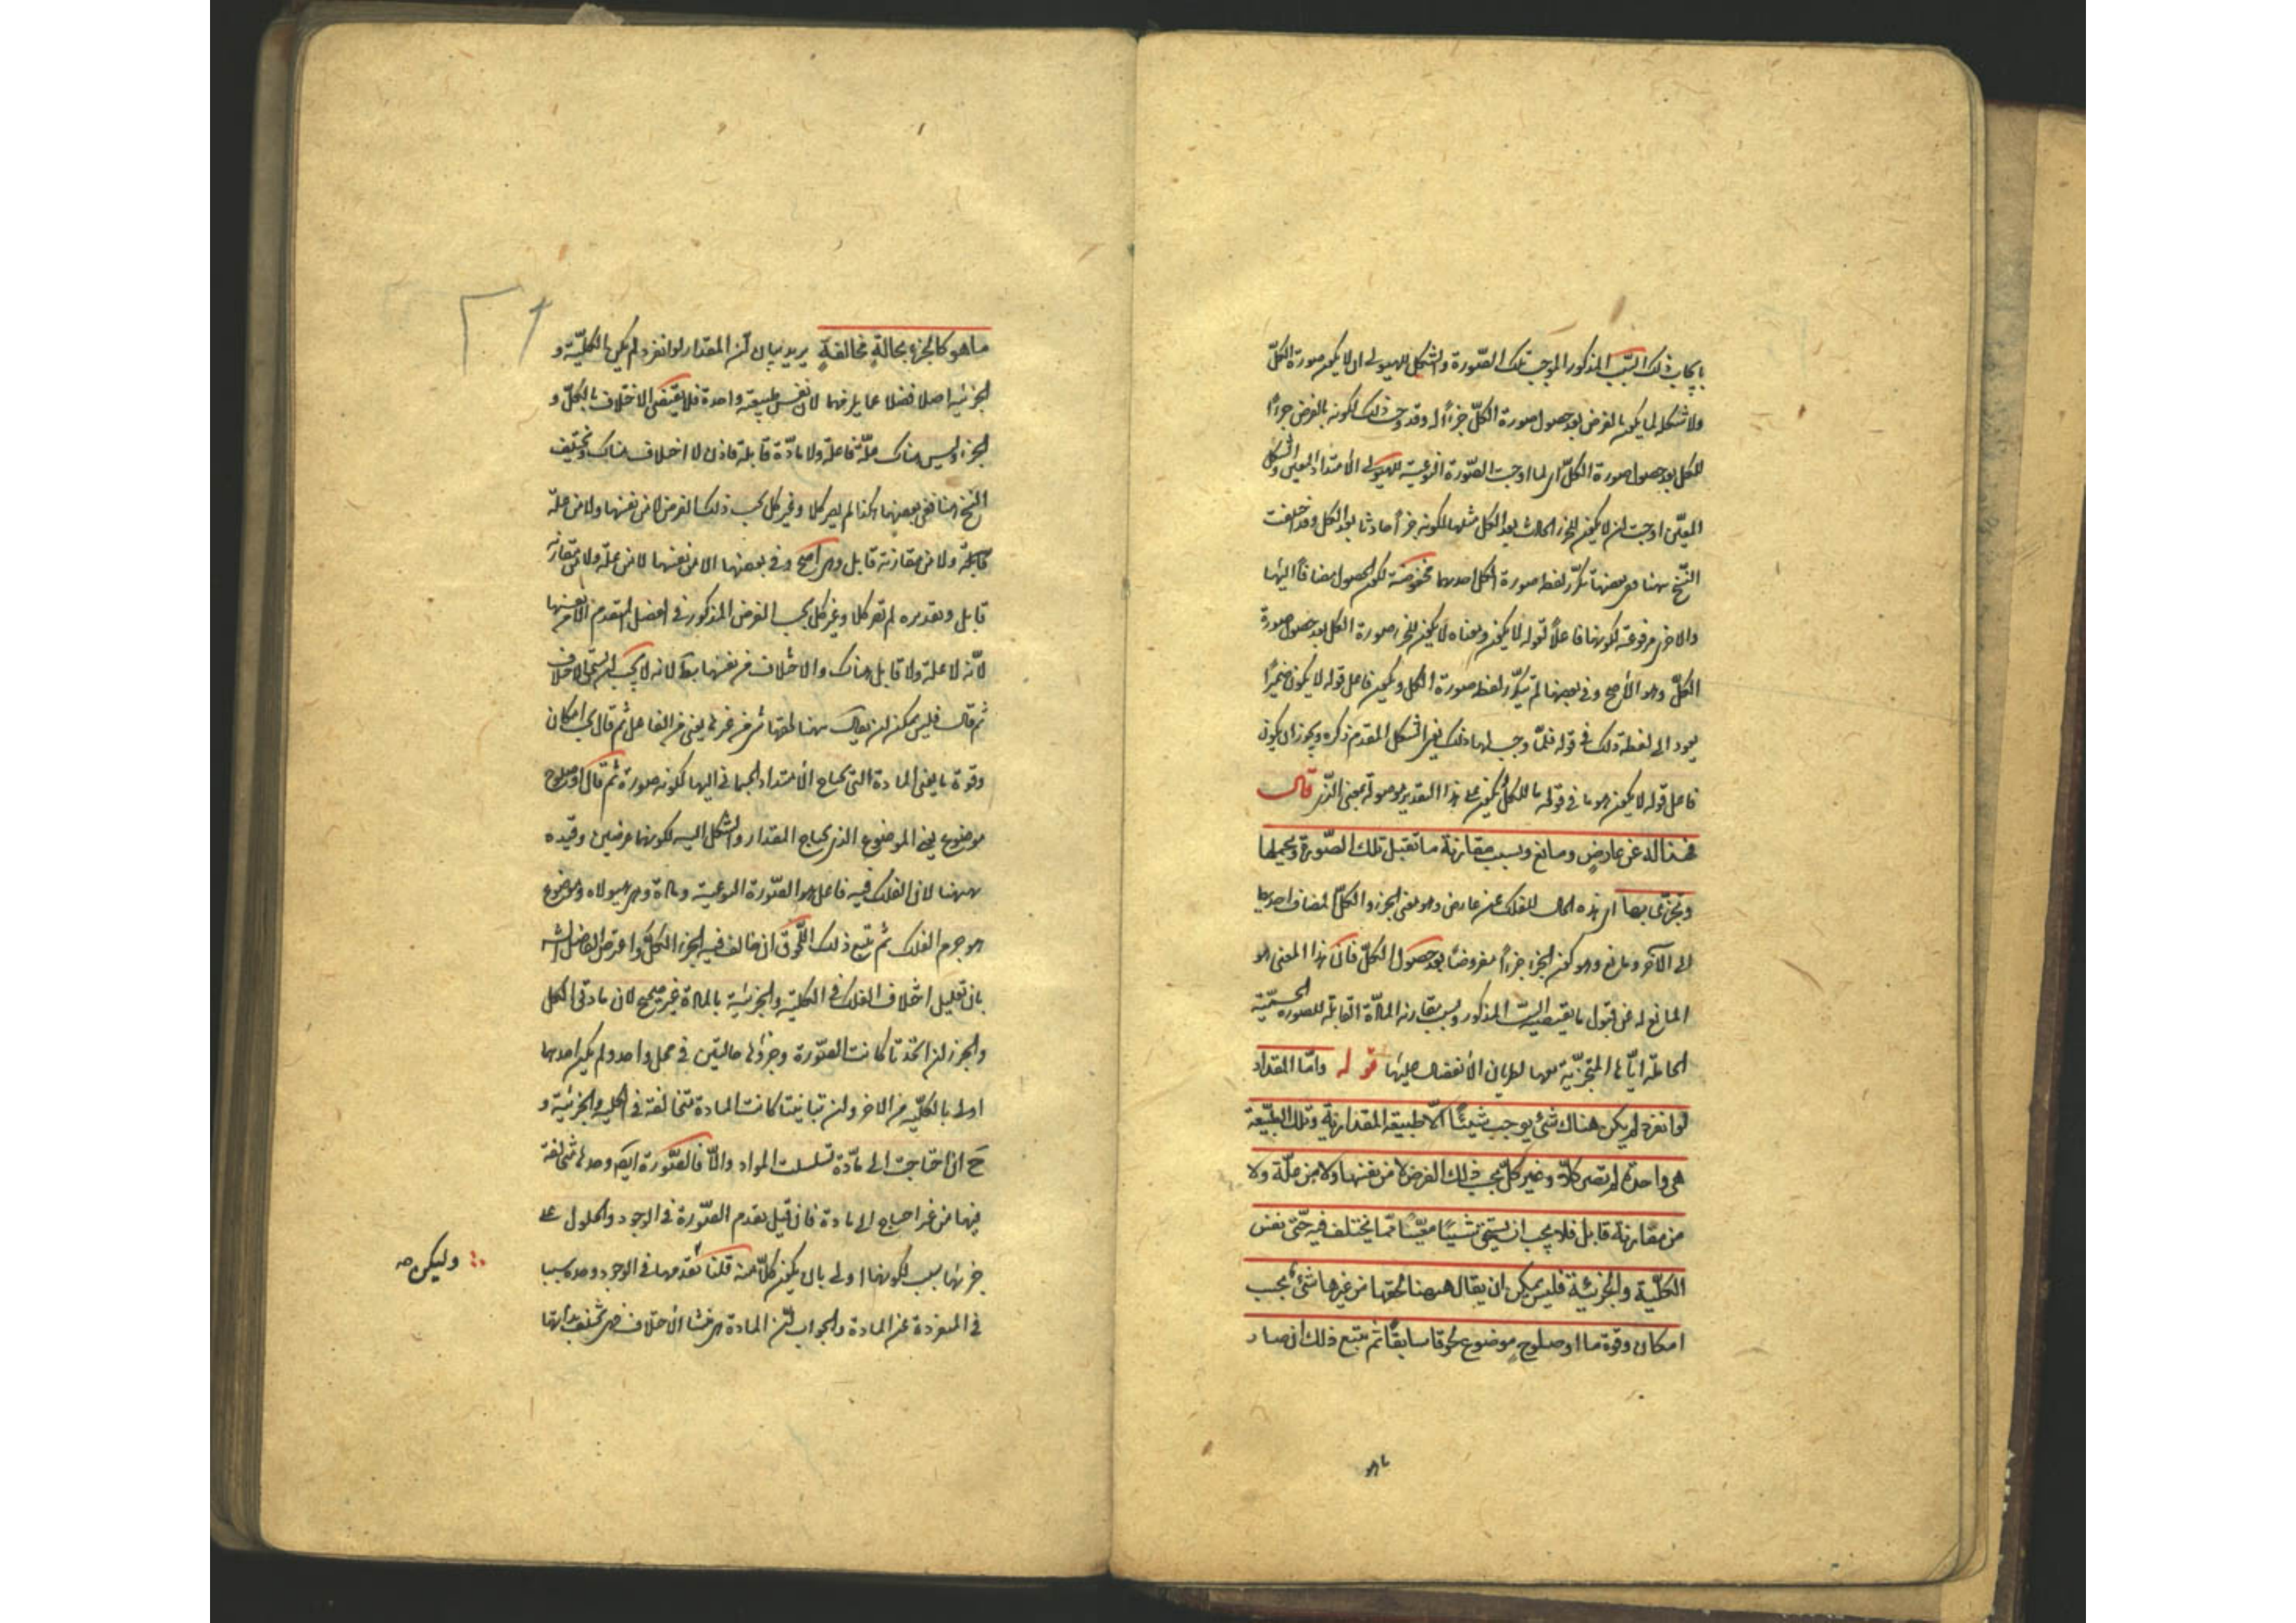 بايجاب ذلك السبب المذكور الموجب تلك الصّورة والشكل للهيولى ان لا يكون صورة الكلّ
ولا شكله لما يكون بالفرض بعد حصول صورة الكلّ جزءاً له وقد وجب ذلك لكونه بالفرض جزءاً
للكل بعد حصول صورة الكلّ اى لما اوجبت الصّورة النوعية للهيولى الامتداد المعين والشكل
المعيّن اوجبت ان لا يكون للجزء الحادث بعد الكل مثلهما لكونه جزءاً حادثا بعد الكل وقد اختلفت
النّسخ ههنا ففى بعضها تكرّر لفظ صورة الكل احديهما مخفوضة لكون الحصول مضافاً اليها
والاخرى مرفوعة لكونها فاعلاً لقوله لا يكون ومعناه لا يكون للجزء صورة الكل بعد حصول صورة
الكلّ وهو الأصح وفى بعضها لم تتكرّر لفظ صورة الكل ويكون فاعل قوله لا يكون ضميراً
يعود الى لفظة ذلك فى قوله فلمّا وجب لها ذلك يعنى الشكل المتقدم ذكره ويجوز ان يكون
فاعل قوله لا يكون هو ما فى قوله ما للكل ويكون على هذا التقدير موصولة بمعنى الذى قال
فهذا له عن عارض ومانع وبسبب مقارنة ما تقبل تلك الصّورة ويحملها
وتتجزى بها اى هذه الحال للفلك عن عارض وهو معنى الجزء والكلّ المضاف احديهما
الى الآخر ومانع وهو كون الجزء جزءاً مفروضاً بعد حصول الكلّ فانّ هذا المعنى هو
المانع له عن قبول ما يقتضيه السبب المذكور وبسبب مقارنة المادّة القابلة للصورة الجسمية
الحاملة ايّاها المتجزّية معها لطريان الانفصال عليها قوله وامّا المقدار
لو انفرد لم يكن هناك شئ يوجب شيئاً الّا طبيعة المقدارية وتلك الطبيعة
هى واحدة لم تصر كلّا وغير كلّ بحسب ذلك الفرض لا من نفسها ولا من علّة ولا
من مقارنة قابل فلا يجب ان يستحق شيئاً معيّناً ممّا يختلف فيه حتّى نفس
الكليّة والجزئية فليس يمكن ان يقال ههنا لحقها من غيرها شئ بحسب
امكان وقوة ما او صلوح موضوع لحوقا سابقاً ثم يتبع ذلك ان صار
ما هو
ما هو كالجزء بحالةٍ مخالفةٍ يريد بيان انّ المقدار لو انفرد لم يكن بالكليّة و
الجزئية اصلا فضلا عما يلزمهما لان نفس طبيعته واحدة فلا يقتضى الاختلاف بالكلّ و
الجزء وليس هناك علّة فاعلة ولا مادّة قابلة فاذن لا اختلاف هناك وتختلف
النّسخ هنا ففى بعضها هكذا لم يصر كلا وغير كل بحسب ذلك الفرض لا من نفسها ولا من علّة
فاعلة ولا من مقارنة قابل وهى اصح وفى بعضها الا من نفسها لا من علّة ولا من مقارنة
قابل وتقديره لم تصر كلا وغير كل بحسب الفرض المذكور فى الفصل المتقدم الا من نفسها
لأنّه لا علة ولا قابل هناك والاختلاف من نفسها بط لانه لا يجب ان يستحق الاختلاف
ثم قال فليس يمكن ان يقال ههنا لحقها شئ من غيرها يعنى من الفاعل ثم قال بحسب امكان
وقوة ما يعنى المادة التى يحتاج الامتداد الجسمانى اليها لكونه صورة ثم قال او صلوح
موضوع يعنى الموضوع الذى يحتاج المقدار والشكل اليه لكونهما عرضين وقيّده
ههنا لان الفلك فيه فاعل هو الصّورة النوعية ومادة وهى هيولاه وموضوع
هو جرم الفلك ثم تتبع ذلك اللحوق ان خالف فيه الجزء الكلّ واعترض الفاضل الشه
بان تعليل اختلاف الفلك فى الكليّة والجزئية بالمادة غير صحيح لان مادتى الكل
والجزء ان اتحدتا كانت الصّورة وجزؤها حالتين فى محل واحد ولم يكن احديهما
اولى بالكليّة من الاخر وان تباينتا كانت المادة متخالفة فى الكلية والجزئية و
ح ان احتاجت الى مادّة تسلسلت المواد والّا فالصّورة ايضا وحدها متخالفة
فيها من غير احتياج الى مادة فان قيل تقدم الصّورة فى الوجود والحلول على
جزئها سبب لكونها اولى بان يكون كلّا منه قلنا تقدمها فى الوجود وحده سببا
فى المنفردة عن المادة والجواب انّ المادة هى منشأ الاختلاف فهى تختلف بذاتها
وليكن صه